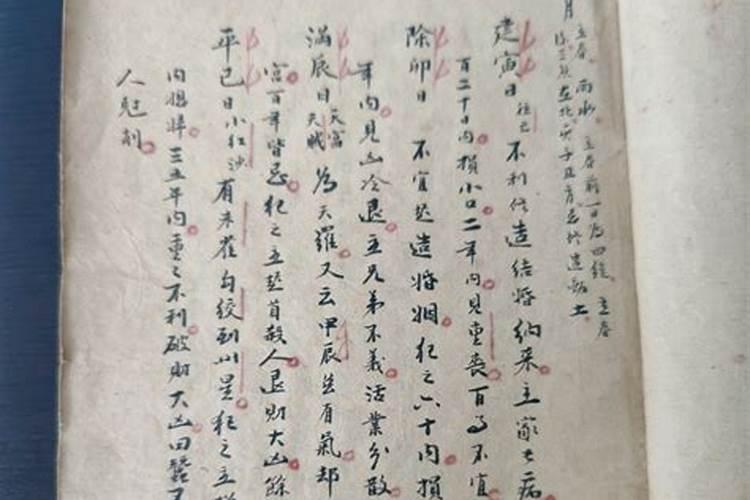 月 立春 雨水 立春前一日為四絕 立春
建寅日 往亡 不利修造結婚納采主家長病
百二十日內損小口二年內見重喪百事不宜
除卯日 不宜起造婚姻犯之六十內損
年內見凶冷退主兄弟不義活業分散
滿辰日 天富 天賊 為天羅又云甲辰雖有氣却
宮百年皆忌犯之主起首殺人退財大凶餘
平巳日小紅沙有朱雀勾絞到州星犯之主
內損 三五年內重重不利破財大凶田蠶不
人剋剝